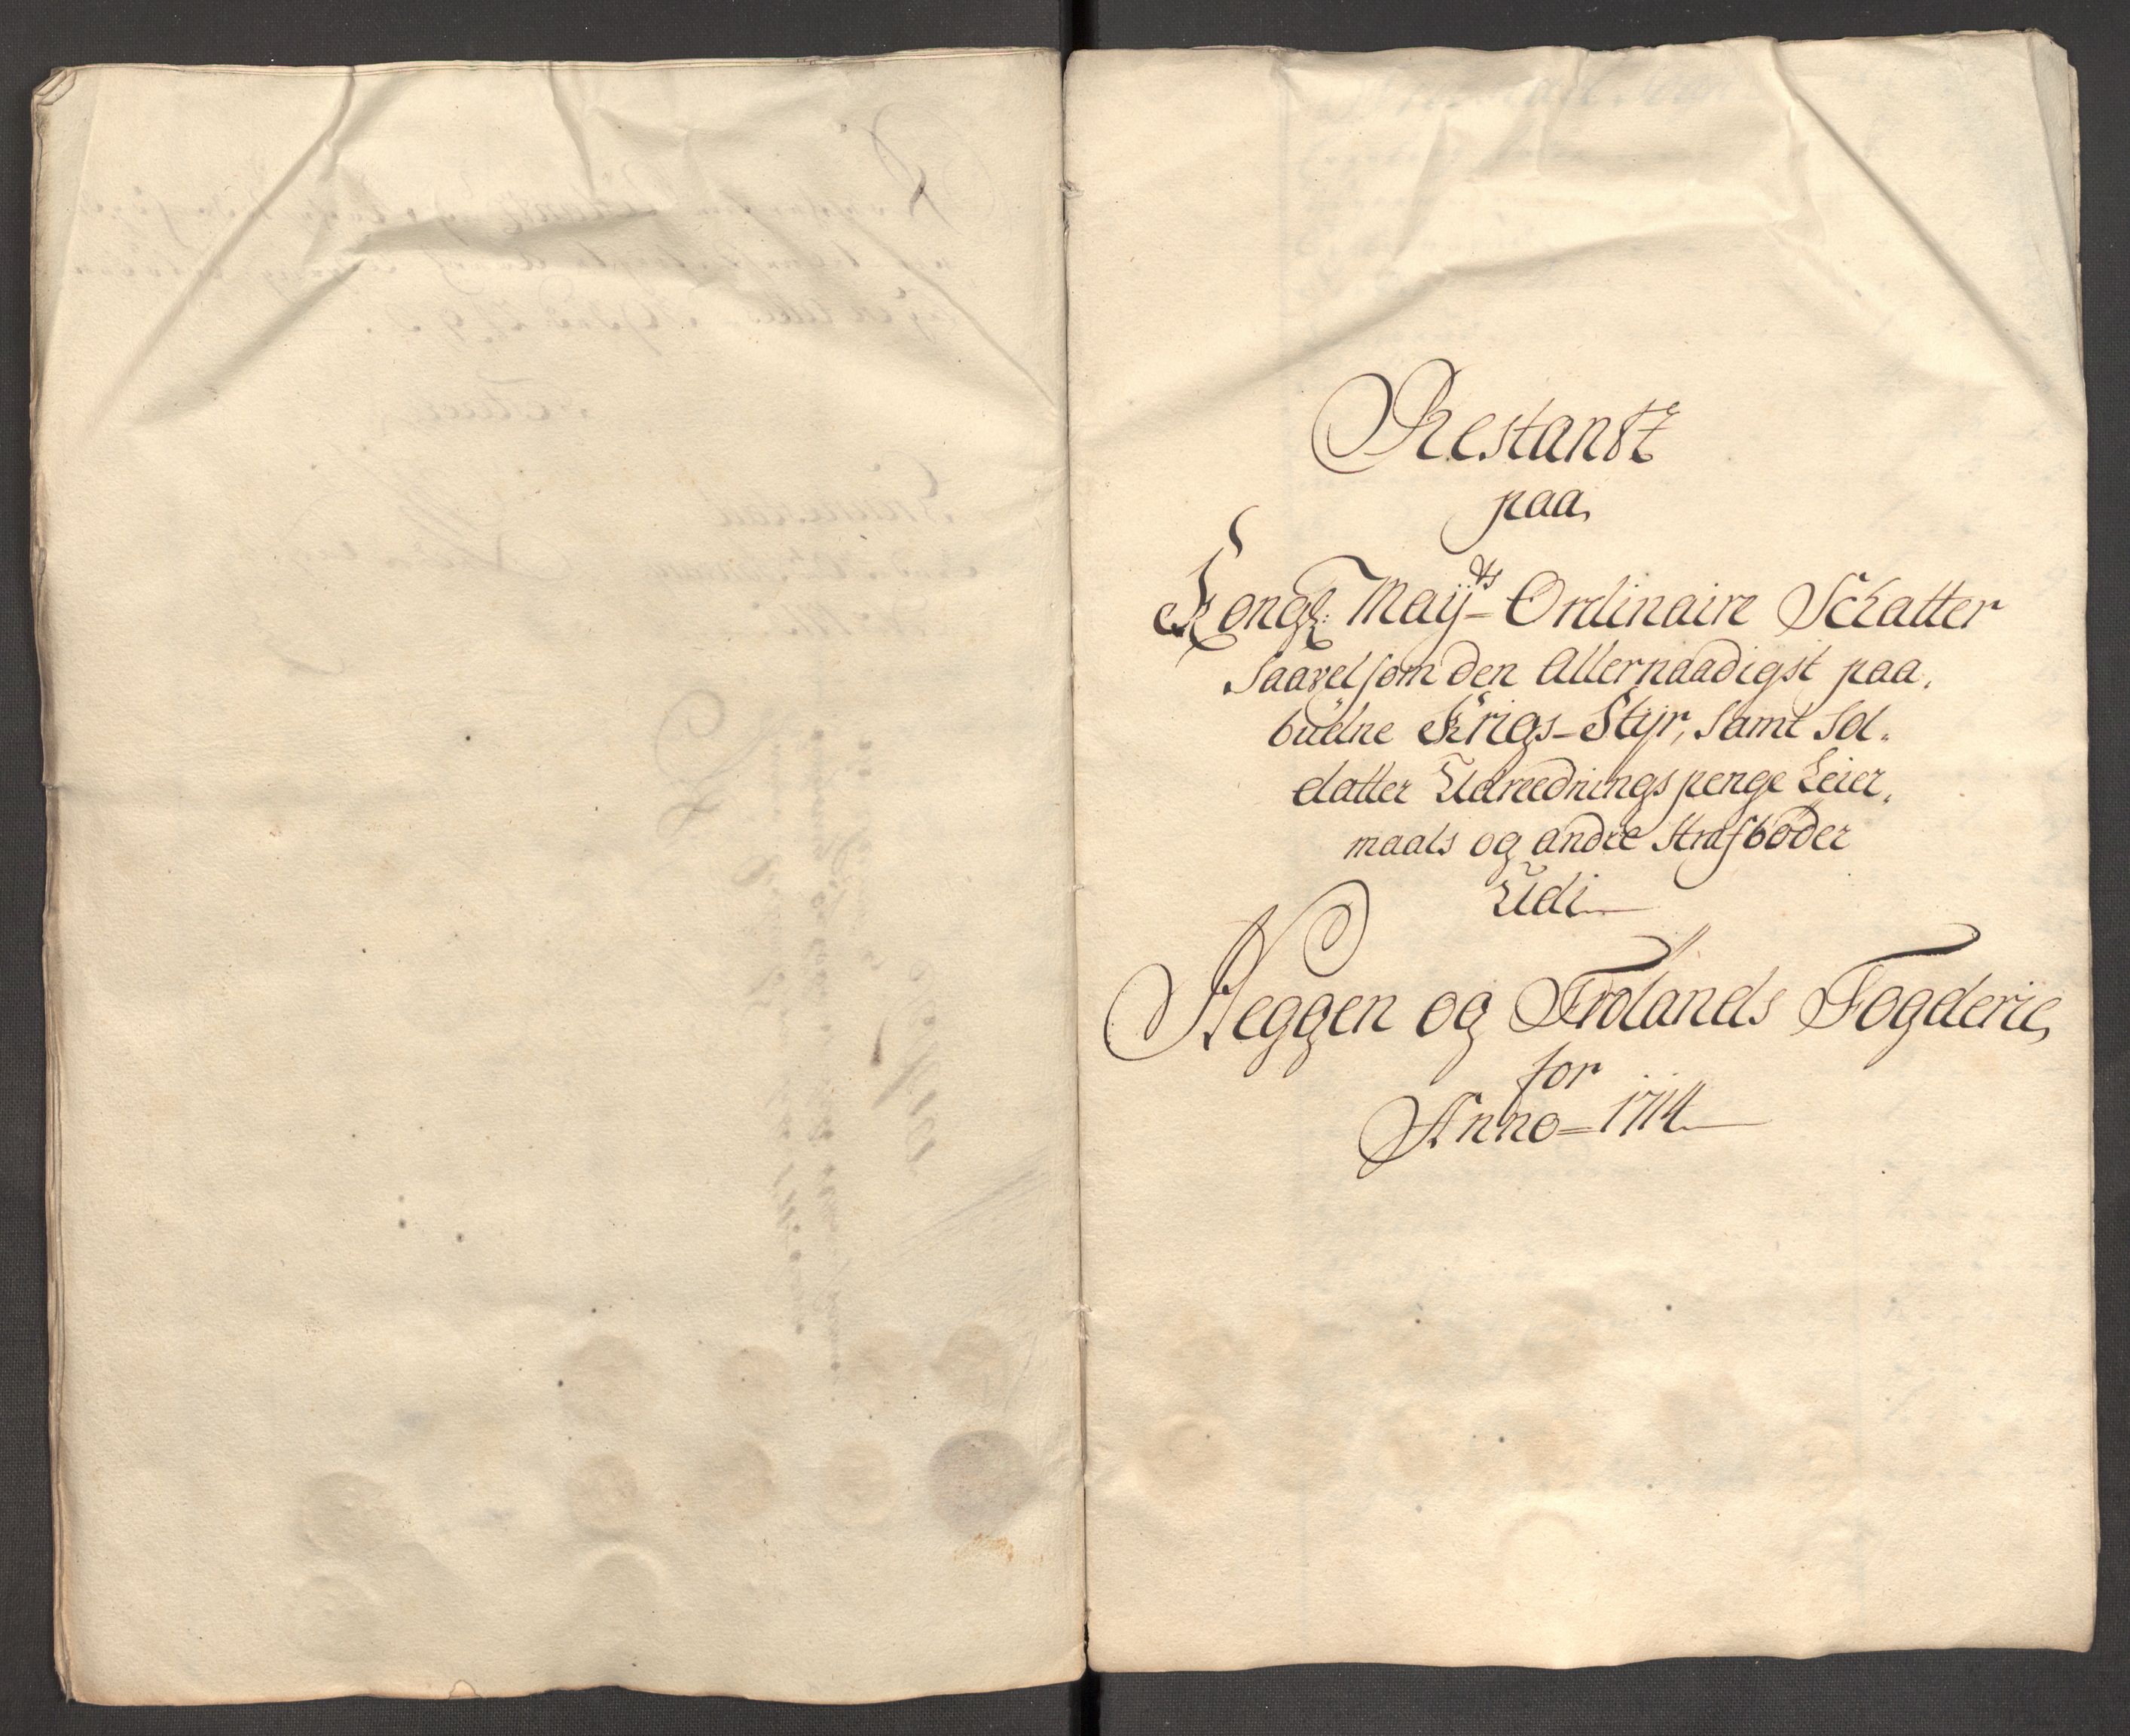 Restantz
paa
Kongl: Maij^ts Ordinaire Schatter
saavelsom den Allernaadigst paa,
budne Krigs-Styr, samt Sol,
datter Udreednings penge Leier,
maals og andre Strafbøder
Udi
Heggen og Frølands Fogderie
for
Anno=1714